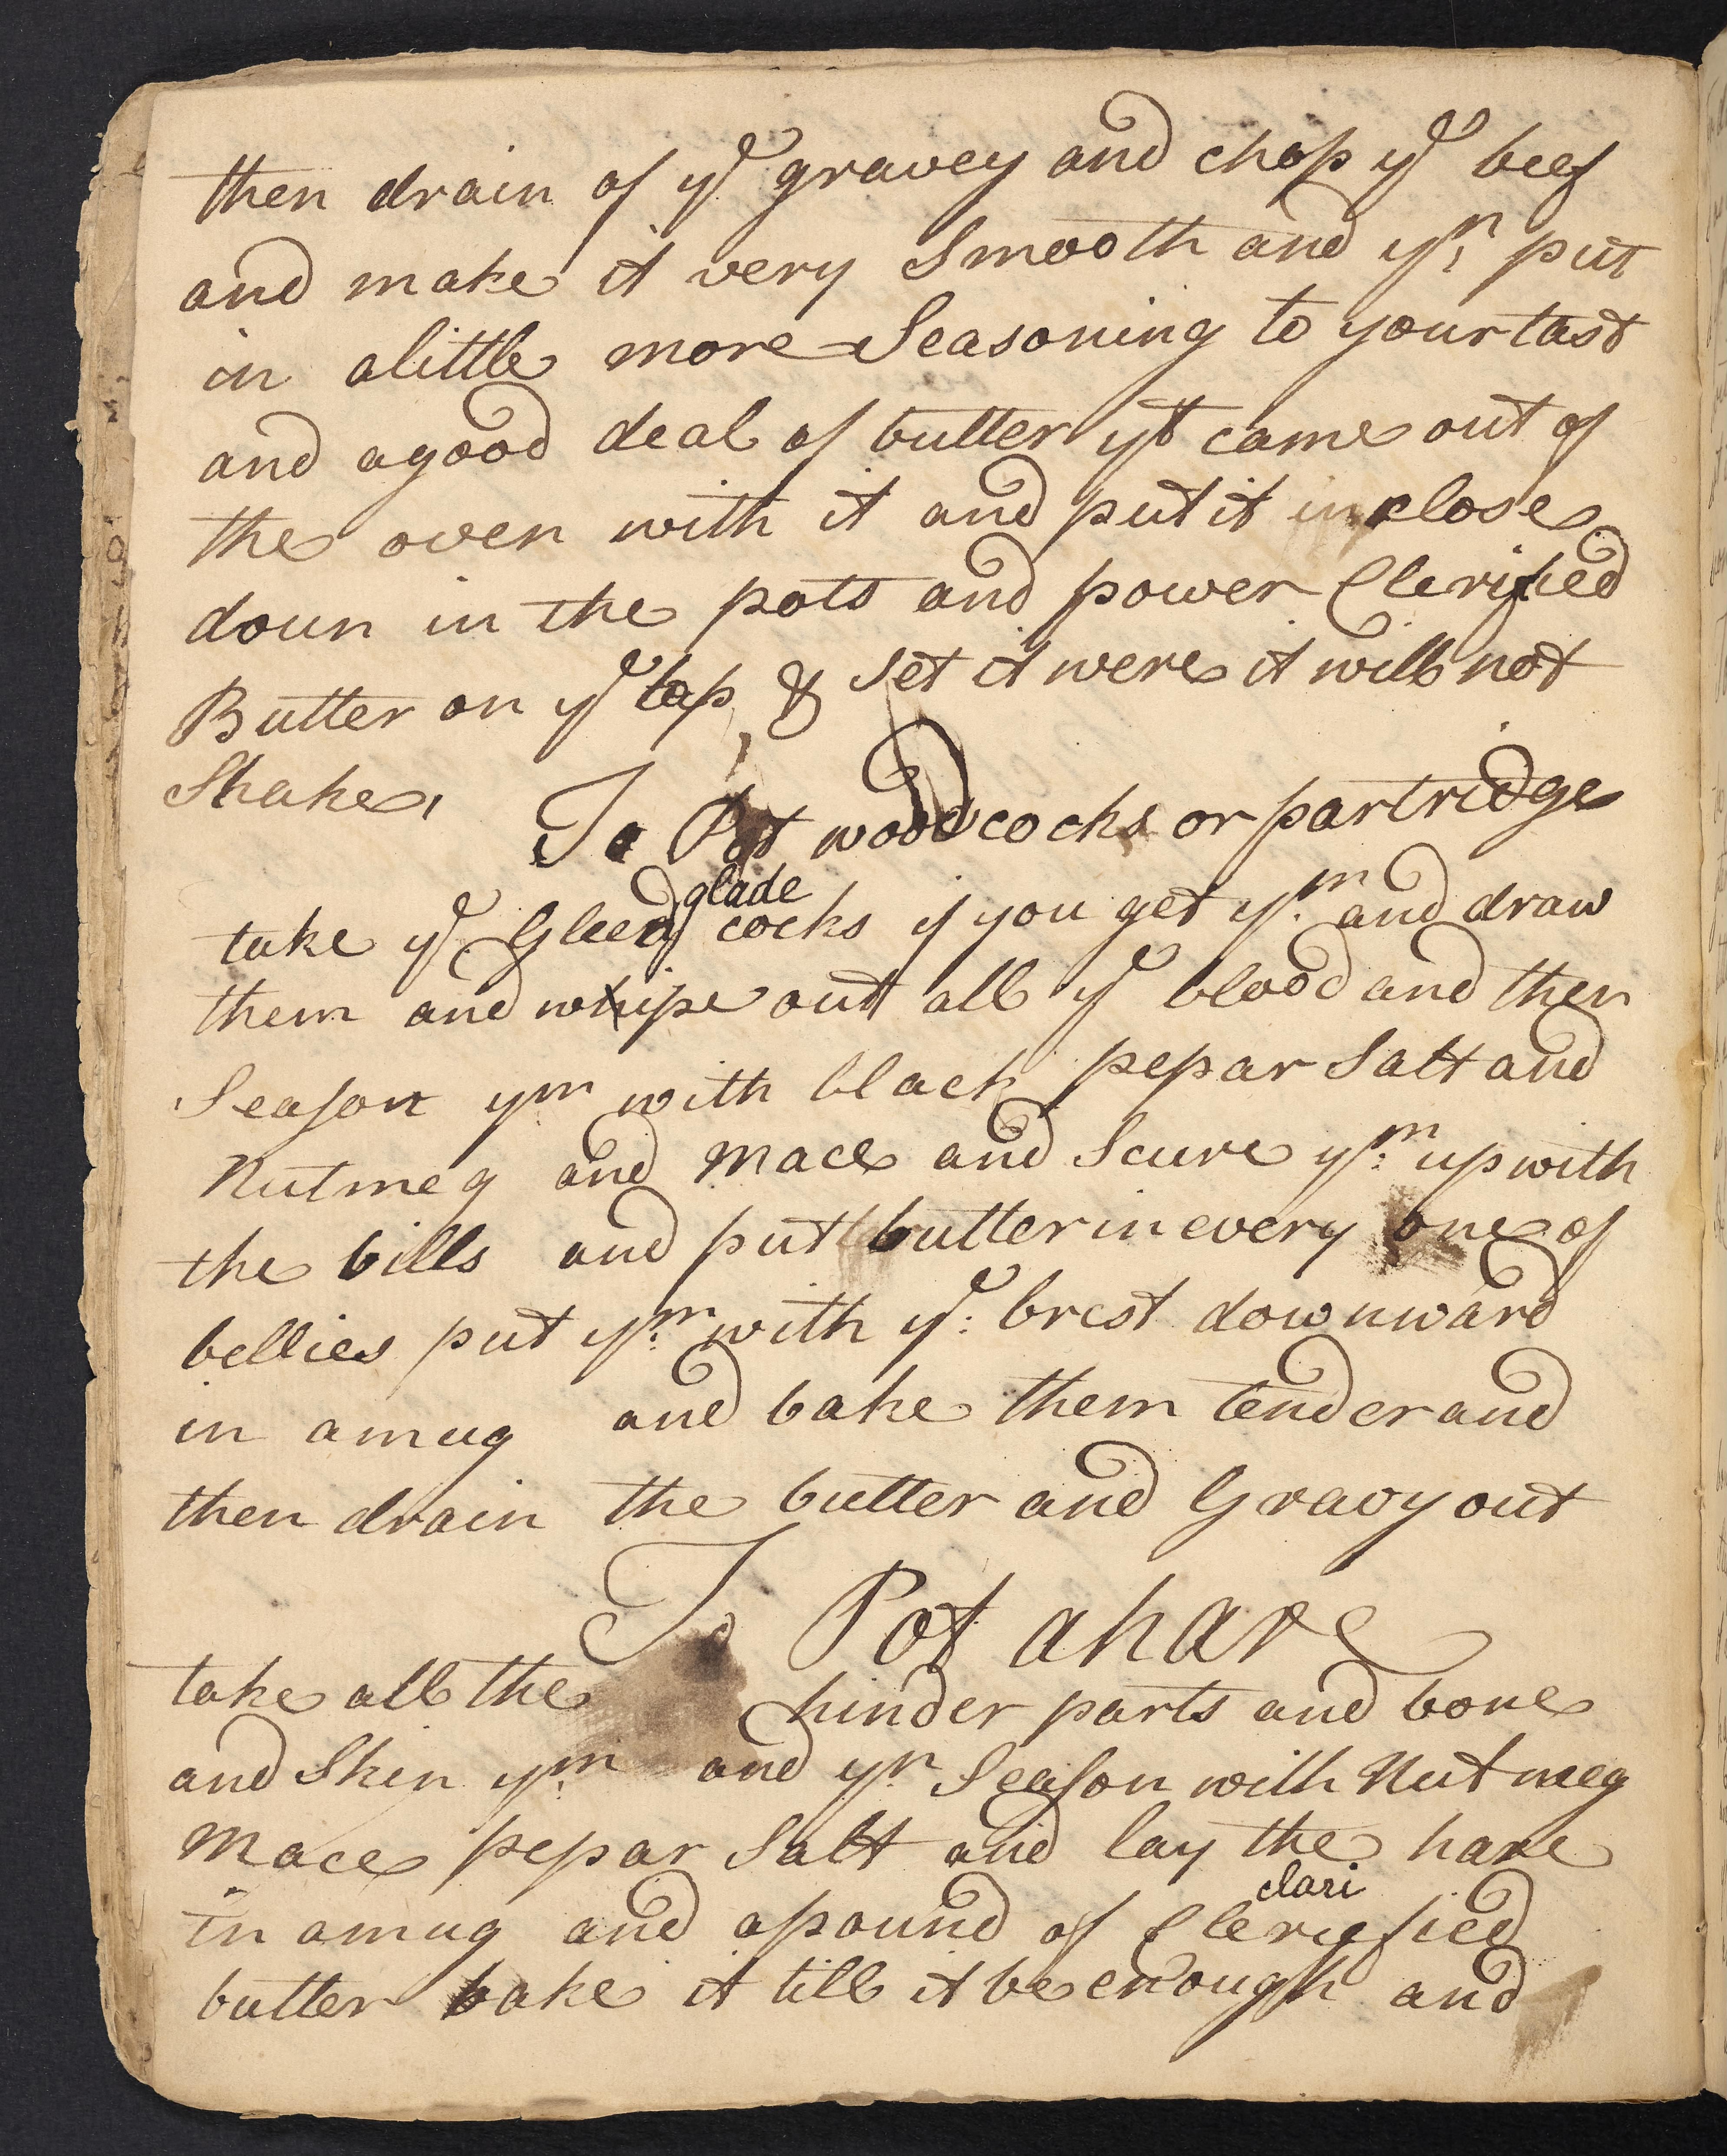 then drain of ye gravey and chop ye beef
and make it very Smooth and yn put
in alittle more Seasoning to your tast
and agood deal of butter yt came out of
the oven with it and put it in close
doun in the pots and power Clerified
Butter on ye top & set it were it will not
Shake,
To Pot woodcocks or partridge
glade
take ye Gleed cocks if you get ym and draw
them and whipe out all ye blood and then
Season ym with black pepar Salt and
Nutmeg and mace and Scure ym up with
the bills and put butter in every one of
bellies put ym with ye brest downward
in amug and bake them tender and
then drain the butter and Gravy out
To Pot a hare
take all the hinder parts and bone
and Skin ym and yn Season with Nutmeg
Mace pepar Salt and lay the hare
clari
in amug and apound of Clerefied
butter bake it till it be enough and